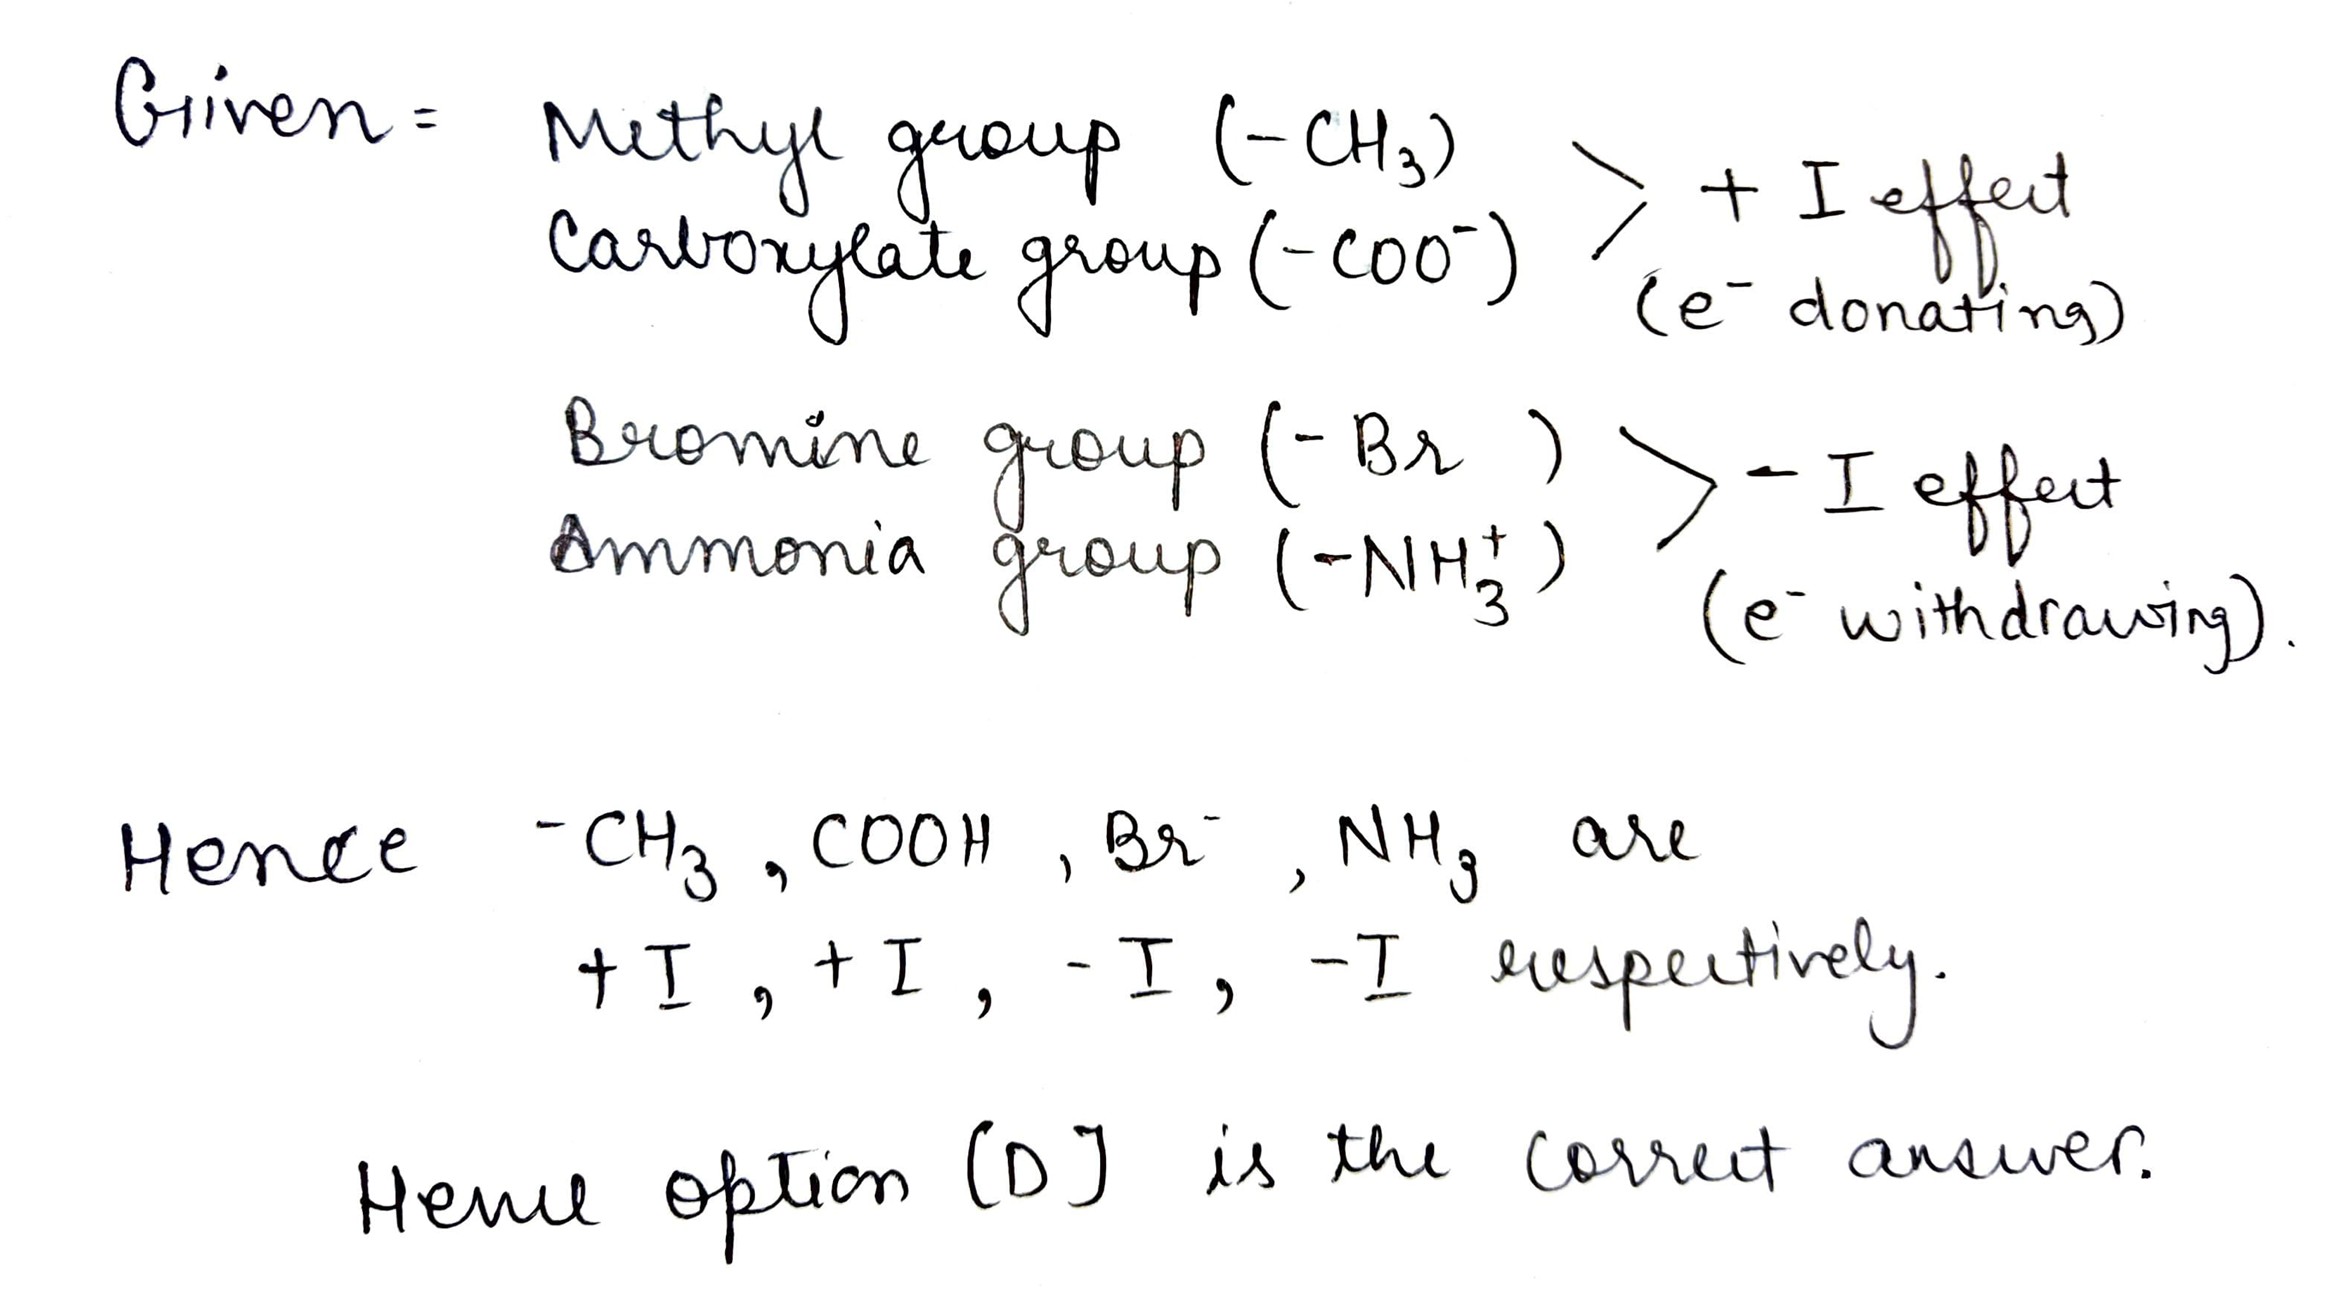 Given = Methyl group (-CH₃)
Carboxylate group (-COO⁻) > + I effect
(e⁻ donating)
Bromine group (-Br )
Ammonia group (-NH₃⁺) > - I effect
(e⁻ withdrawing).
Hence -CH₃, COOH, Br⁻, NH₃ are
+I, +I, -I, -I respectively.
Hence option [D] is the correct answer.